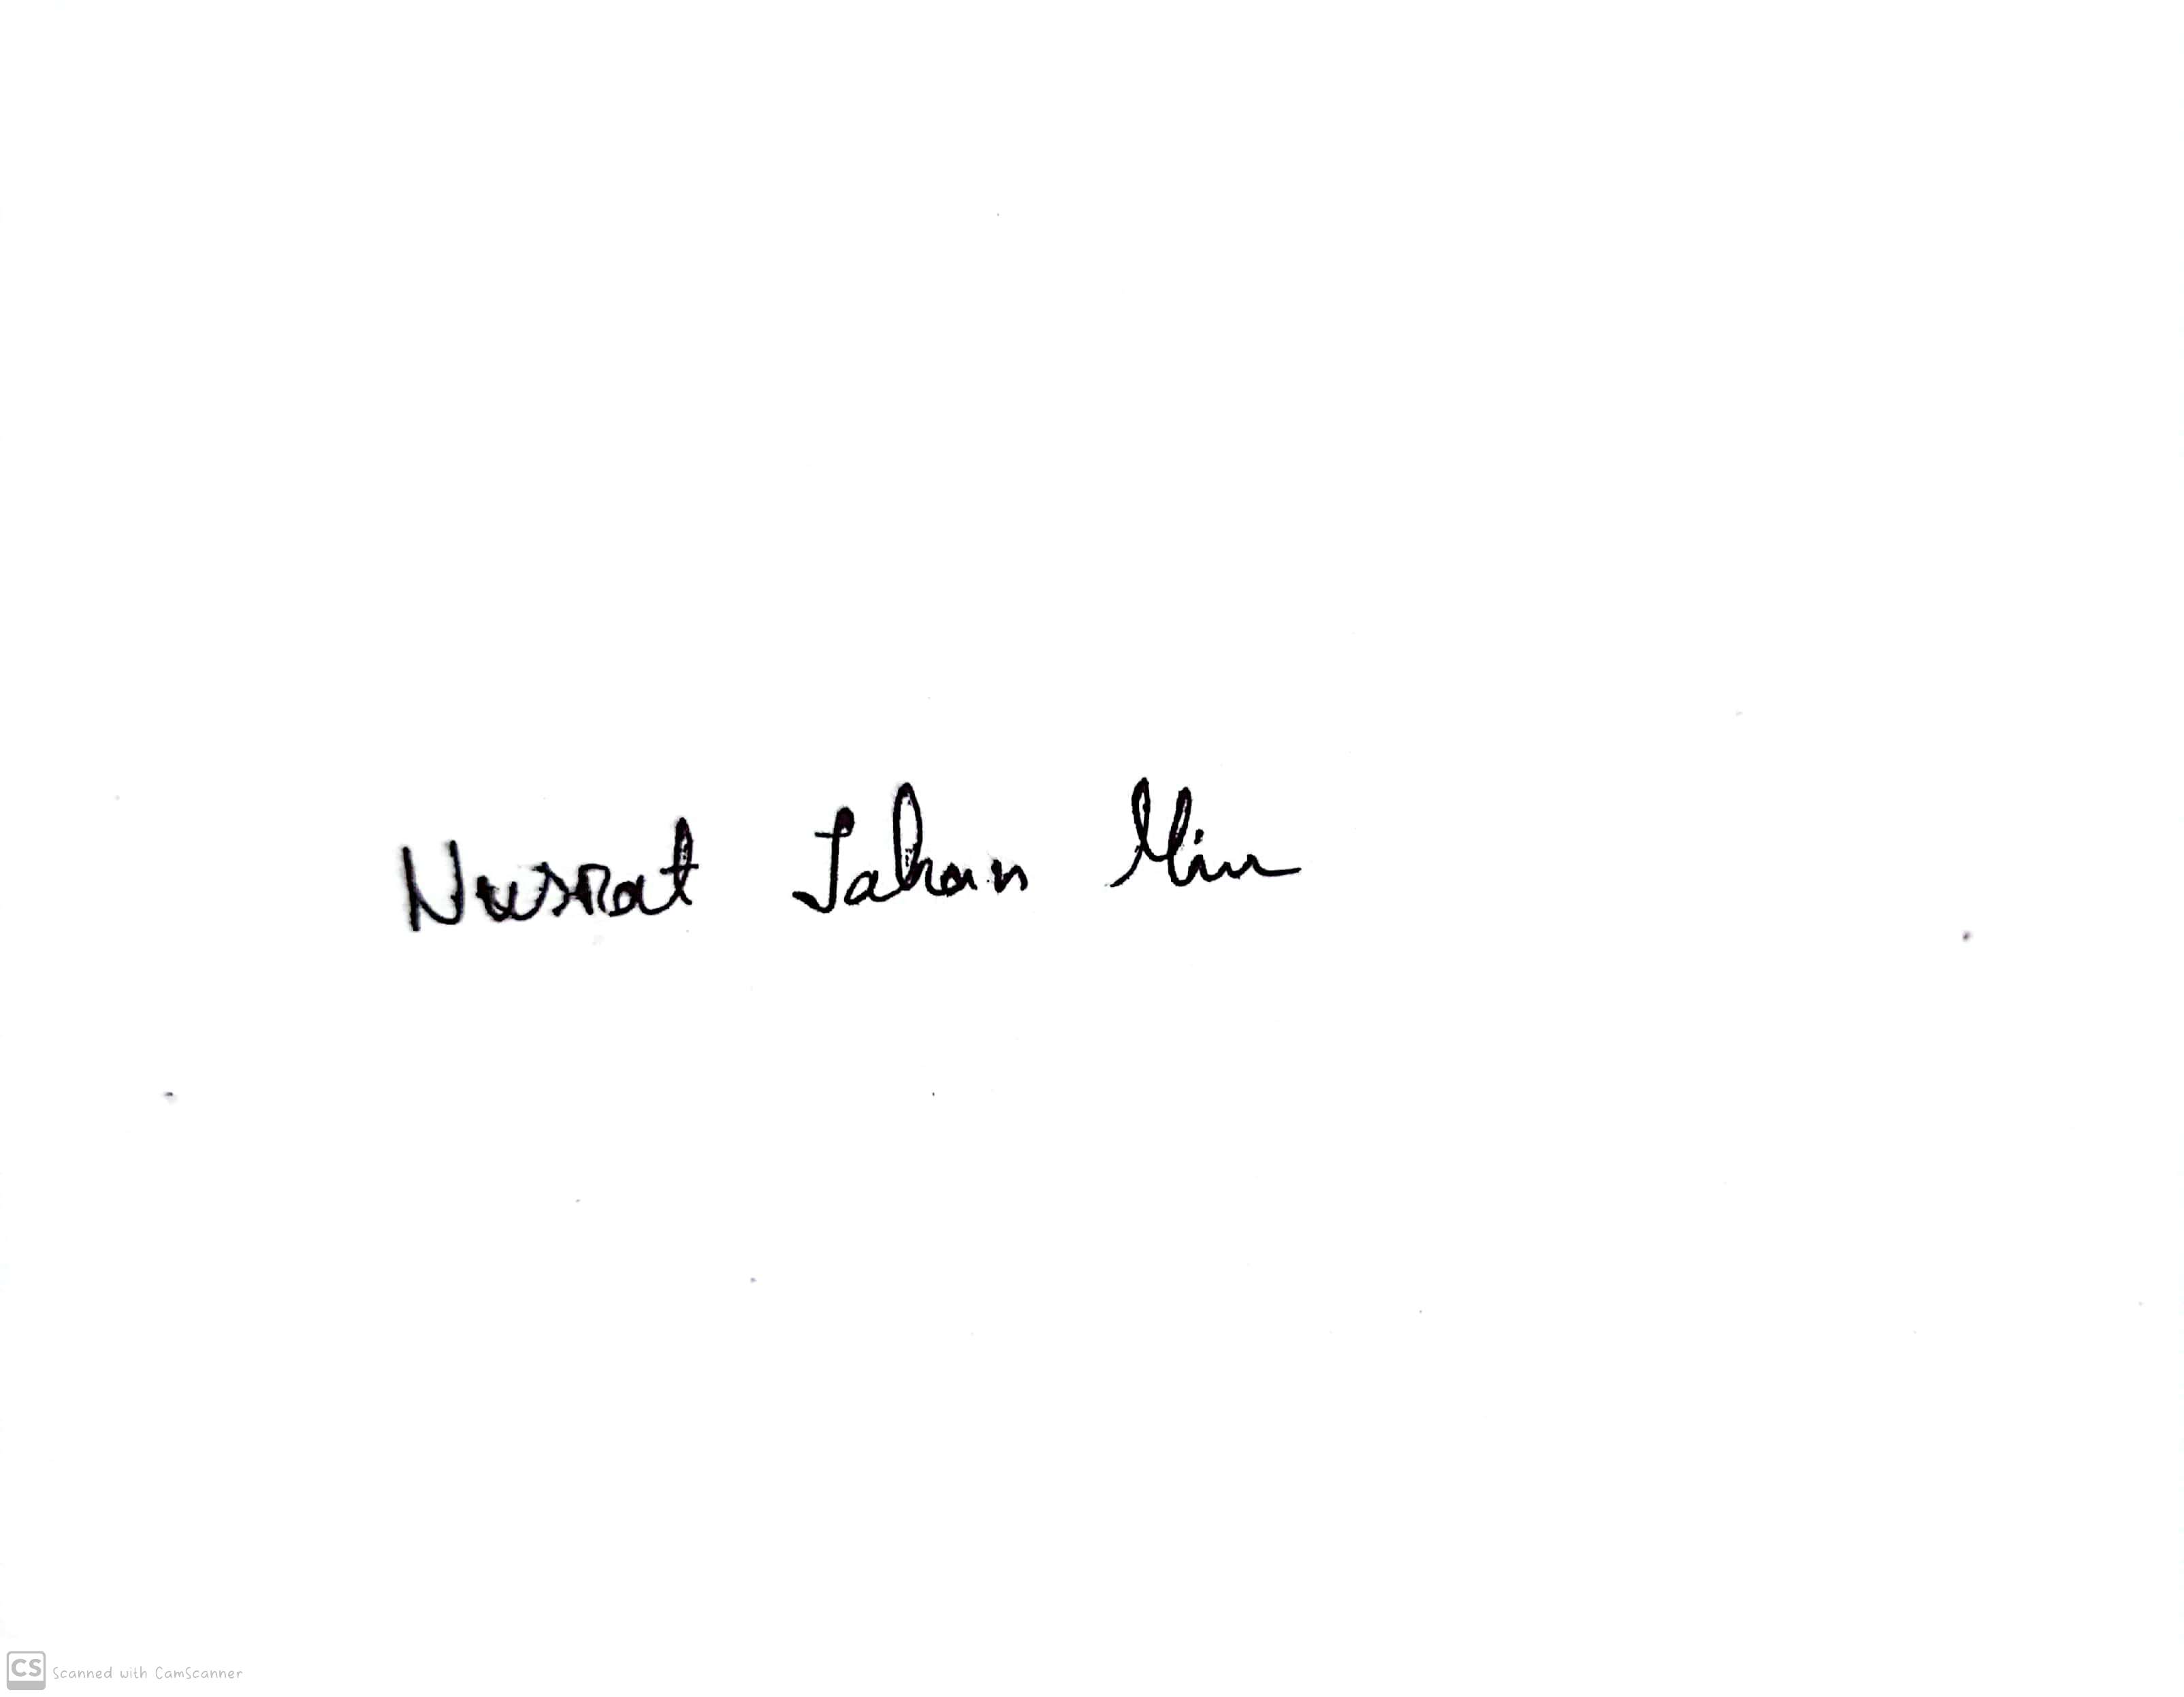 Nusrat Jahan Mim
CS Scanned with CamScanner